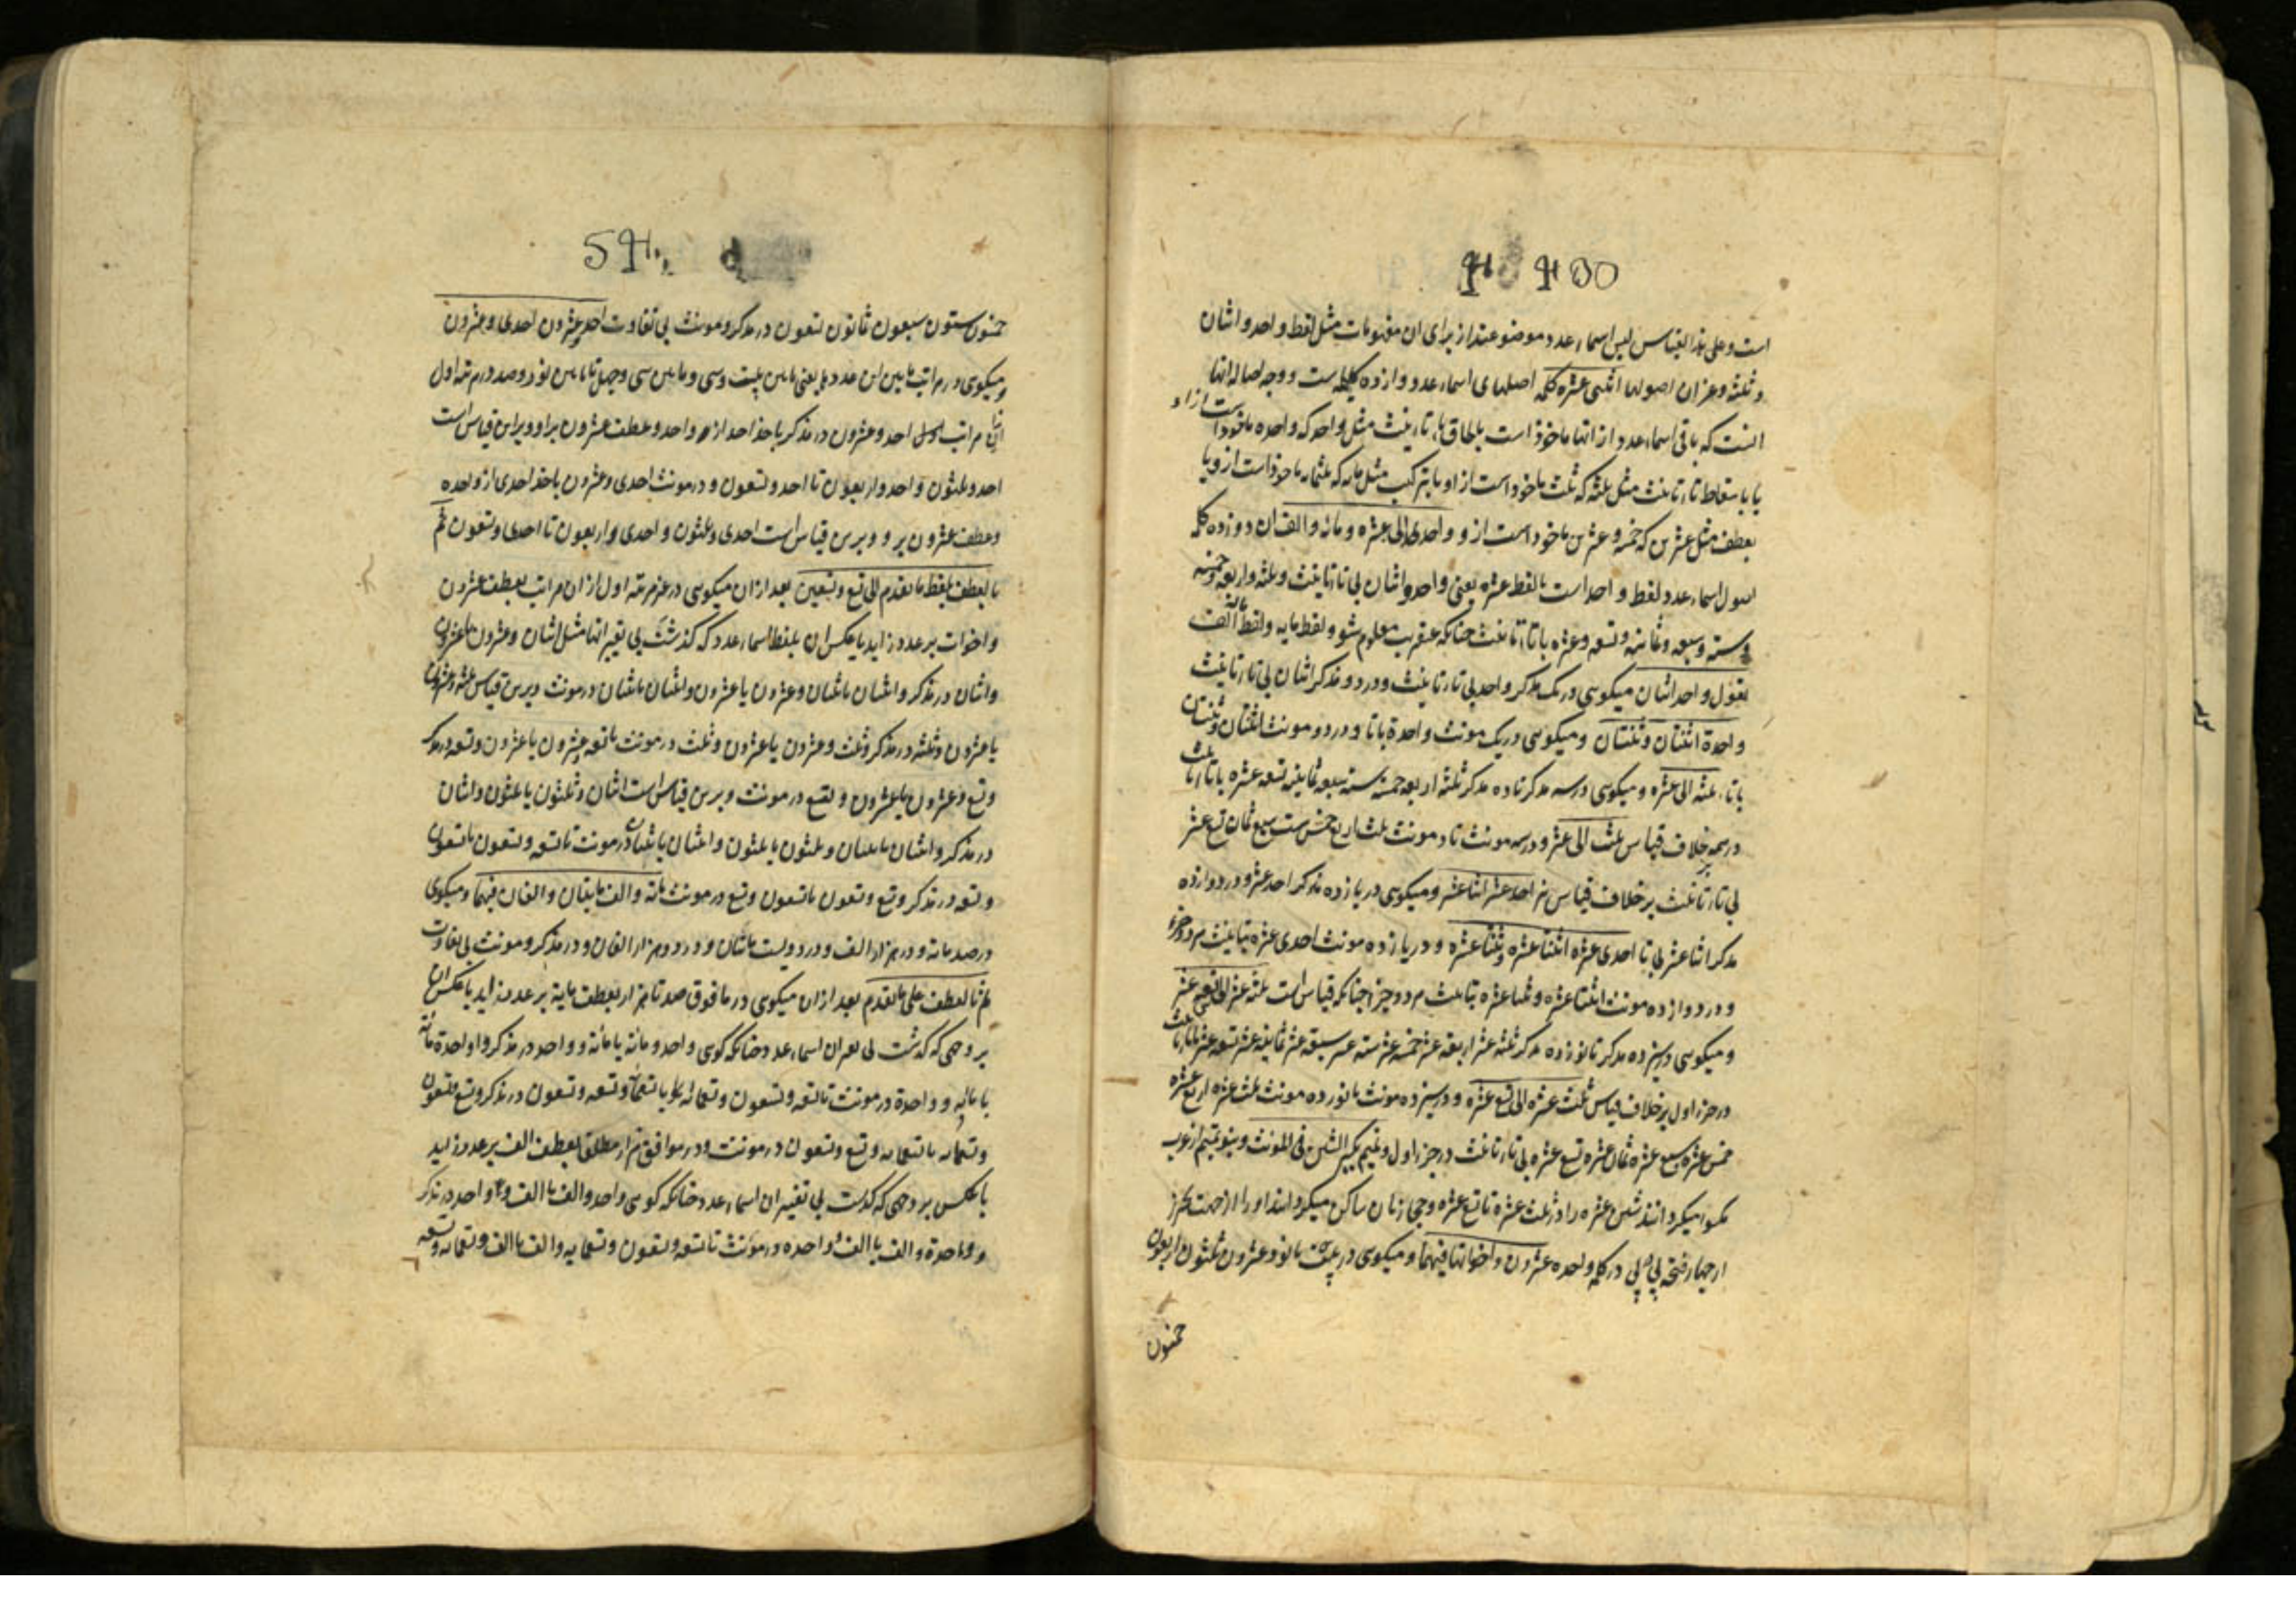 است و علی هذا القیاس لیس اسماء عدد موضوعند از برای ان مفهومات مثل لفظ واحد و اثنان
و ثلثه و غیر ان اصولها اثنی عشره کلمه اصلهای اسماء عدد دوازده کلمه است و وجه اصاله انها
انست که باقی اسماء عدد از انها ماخوذ است بالحاق تاء تانیث مثل واحد که واحده ماخوذ است ازو
یا باسقاط تاء تانیث مثل ثلثه که ثلث ماخوذ است از او یا بترکیب مثل مایه که ثلثمایه ماخوذ است از و یا
بعطف مثل عشرین که خمسه و عشرین ماخوذ است از و واحد الی عشره و مائه و الف ان دوازده کلمه
اصول اسماء عدد لفظ واحد است تا لفظ عشره یعنی واحد و اثنان بی تاء تانیث و ثلثه و اربعه و خمسه
و سته و سبعه و ثمانیه و تسعه و عشره با تاء تانیث چنانکه عنقریب معلوم شود و لفظ مایه و لفظ الف
تقول واحد اثنان میکویی در یک مذکر واحد بی تاء تانیث و در دو مذکر اثنان بی تاء تانیث
واحدة اثنتان و ثنتان و میکویی در یک مونث واحدة با تا و در دو مونث اثنتان و ثنتان
با تاء ثلثه الی عشره و میکویی در سه مذکر تا ده مذکر ثلثه اربعه خمسه سته سبعه ثمانیه تسعه عشره با تاء تانیث
در همه بر خلاف قیاس ثلث الی عشر و در سه مونث تا ده مونث ثلث اربع خمس ست سبع ثمان تسع عشر
بی تاء تانیث بر خلاف قیاس نیز احد عشر اثنا عشر و میکویی در یازده مذکر احد عشر و در دوازده
مذکر اثنا عشر بی تا احدی عشره اثنتا عشره و ثنتا عشره و در یازده مونث احدی عشره بتانیث هر دو جزء
و در دوازده مونث اثنتا عشره و ثنتا عشره بتانیث هر دو جزء چنانکه قیاس است ثلثه عشر الی تسعه عشر
و میکویی در سیزده مذکر تا نوزده مذکر ثلثه عشر اربعه عشر خمسه عشر سته عشر سبعه عشر ثمانیه عشر تسعه عشر با تاء تانیث
در جزء اول بر خلاف قیاس ثلث عشره الی تسع عشره و در سیزده مونث تا نوزده مونث ثلث عشره اربع عشره
خمس عشره سبع عشره ثمان عشره تسع عشره بی تاء تانیث در جزء اول و تمیم بکسر الشین فی المونث و بنو تمیم از عرب
مکسور میکردانند شین عشره را در ثلث عشرة تا تسع عشره و حجازیان ساکن میکردانند او را از جهت تحرز
از چهار فتحه پی در پی در کلمه واحده عشرون و اخواتها فیهما و میکویی در بیست تا نود عشرون ثلثون اربعون
خمسون
خمسون ستون سبعون ثمانون تسعون در مذکر و مونث بی تفاوت احد و عشرون احدی و عشرون
و میکویی در مراتب ما بین این عددها یعنی ما بین بیست و سی و ما بین سی و چهل تا ما بین نود و صد در مرتبه اول
این مراتب احد و عشرون در مذکر باخذ احد از واحد و عطف عشرون بر او و بر این قیاس است
احد و ثلثون و احد و اربعون تا احد و تسعون و در مونث احدی و عشرون باخذ احدی از واحده
و عطف عشرون بر و و برین قیاس است احدی و ثلثون و احدی و اربعون تا احدی و تسعون ثم
بالعطف بلفظ ما تقدم الی تسع و تسعین بعد ازان میکویی در غیر مرتبه اول از ان مراتب بعطف عشرون
و اخوات بر عدد زاید یا عکس ان بلفظ اسماء عدد که کذشت بی تغییر انها مثل اثنان و عشرون یا عشرون
و اثنان در مذکر و اثنتان یا ثنتان و عشرون یا عشرون و اثنتان یا ثنتان در مونث و برین قیاس ثلثه و عشرون
یا عشرون و ثلثه در مذکر و ثلث و عشرون یا عشرون و ثلث در مونث تا تسعه و عشرون یا عشرون و تسعه در مذکر
و تسع و عشرون یا عشرون و تسع در مونث و برین قیاس است اثنان و ثلثون یا ثلثون و اثنان
در مذکر و اثنتان یا ثنتان و ثلثون یا ثلثون و اثنتان یا ثنتان در مونث تا تسعه و تسعون یا تسعون
و تسعه در مذکر و تسع و تسعون یا تسعون و تسع در مونث مائه و الف مائتان و الفان فیهما و میکویی
در صد مائه و در هزار الف و در دویست مائتان و در دو هزار الفان و در مذکر و مونث بی تفاوت
ثم بالعطف علی ما تقدم بعد ازان میکویی در ما فوق صد تا هزار بعطف مایة بر عدد زاید یا عکس ان
بر وجهی که کذشت بی تغییر ان اسماء عدد چنانکه کویی واحد و مائة یا مائة و واحد در مذکر و واحدة و مائة
یا مائه و واحدة در مونث تا تسعه و تسعون و تسعمائه یا تسعمائه و تسعه و تسعون در مذکر و تسع و تسعون
و تسعمائه یا تسعمایه و تسع و تسعون در مونث و در موافق هزار مطلق بعطف الف بر عدد زاید
یا عکس بر وجهی که کذشت بی تغییر ان اسماء عدد چنانکه کویی واحد و الف یا الف و واحد در مذکر
و واحدة و الف یا الف و واحده در مونث تا تسعه و تسعون و تسعمایه و الف یا الف و تسعمایه و تسعه